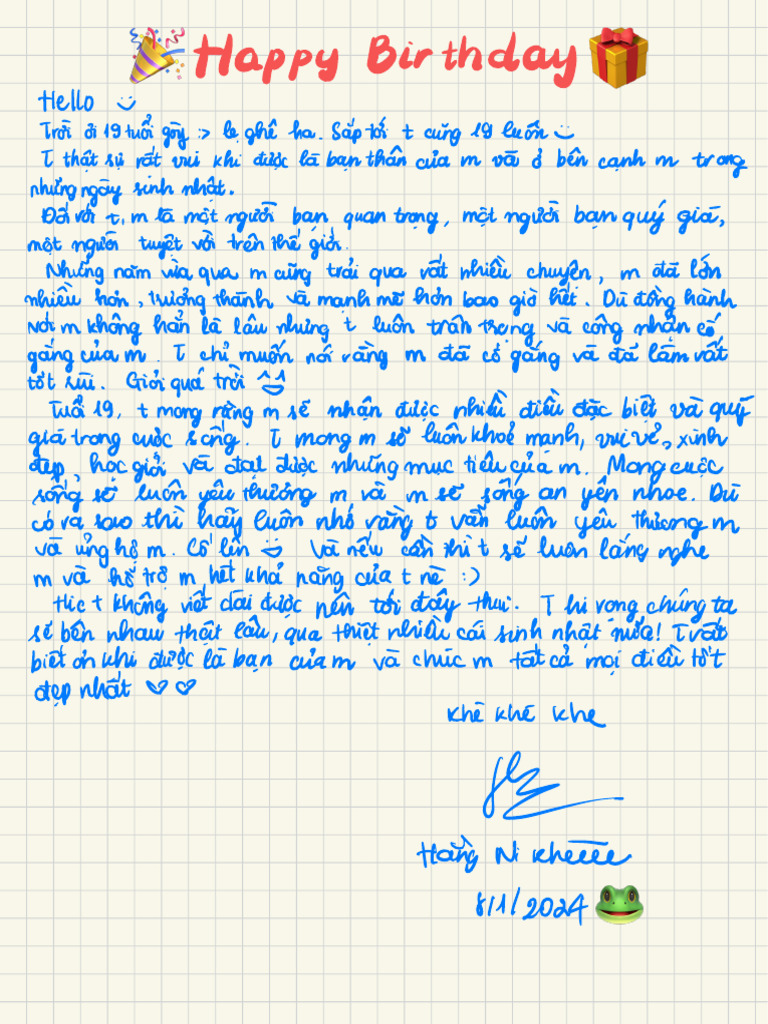 Happy Birthday
Hello
Trời ơi 19 tuổi gòy :> lẹ ghê ha. Sắp tới t cũng 19 luôn
T thật sự rất vui khi được là bạn thân của m và ở bên cạnh m trong
những ngày sinh nhật.
Đối với t, m là một người bạn quan trọng, một người bạn quý giá,
một người tuyệt vời trên thế giới.
Những năm vừa qua m cũng trải qua rất nhiều chuyện, m đã lớn
nhiều hơn, trưởng thành và mạnh mẽ hơn bao giờ hết. Dù đồng hành
với m không hẳn là lâu nhưng t luôn trân trọng và công nhận cố
gắng của m. T chỉ muốn nói rằng m đã cố gắng và đã làm rất
tốt rùi. Giỏi quá trời ^^
Tuổi 19, t mong rằng m sẽ nhận được nhiều điều đặc biệt và quý
giá trong cuộc sống. T mong m sẽ luôn khoẻ mạnh, vui vẻ, xinh
đẹp, học giỏi và đạt được những mục tiêu của m. Mong cuộc
sống sẽ luôn yêu thương m và m sẽ sống an yên nhoe. Dù
có ra sao thì hãy luôn nhớ rằng t vẫn luôn yêu thương m
và ủng hộ m. Cố lên và nếu cần thì t sẽ luôn lắng nghe
m và hỗ trợ m hết khả năng của t nè :)
Hic t không viết dài được nên tới đây thui. T hi vọng chúng ta
sẽ bên nhau thật lâu, qua thiệt nhiều cái sinh nhật nữa! T rất
biết ơn khi được là bạn của m và chúc m tất cả mọi điều tốt
đẹp nhất ♡♡
khê khê khê
Hằng Ni khêêêê
8/1/2024